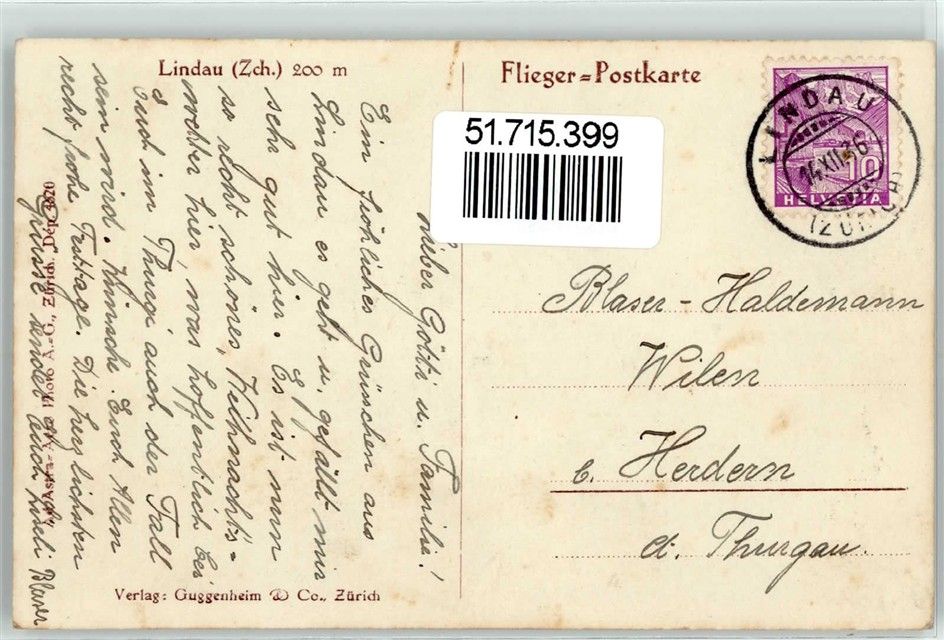 Lindau (Zch.) 200 m
Flieger=Postkarte
51.715.399
LINDAU
14.XII.36
(ZÜRICH)
10
HELVETIA
Liber Götti u. Familie!
Ein fröhliches Grüsschen aus
Lindau es geht u. gefällt mir
sehr gut hier. Es ist nun
so recht schönes, Weihnachts-
wetter hier, was hoffentlich bei
Euch im Thurgi auch der Fall
sein wird. Wünsche Euch Allen
recht frohe Festtage. Die herzlichsten
Grüsse sendet Euch Lineli Blaser
Blaser-Haldemann
Wilen
b. Herdern
ct. Thurgau.
Astra-Aero Photo A.-G., Zürich, Dep. 3820
Verlag: Guggenheim & Co., Zürich